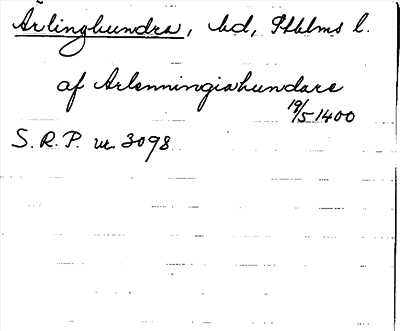 Ärlinghundra, hd, Sthlms l.
af Arlenningiahundare
19/5 1400
S. R. P. nr 3098